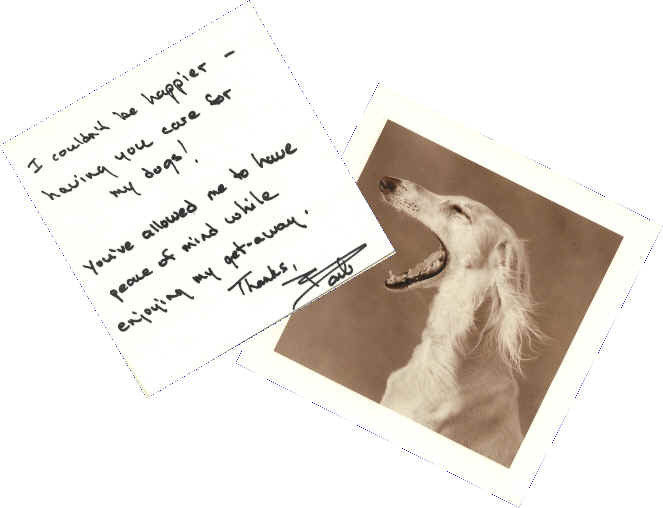 I couldn't be happier -
having you care for
my dogs!
You've allowed me to have
peace of mind while
enjoying my get-away.
Thanks,